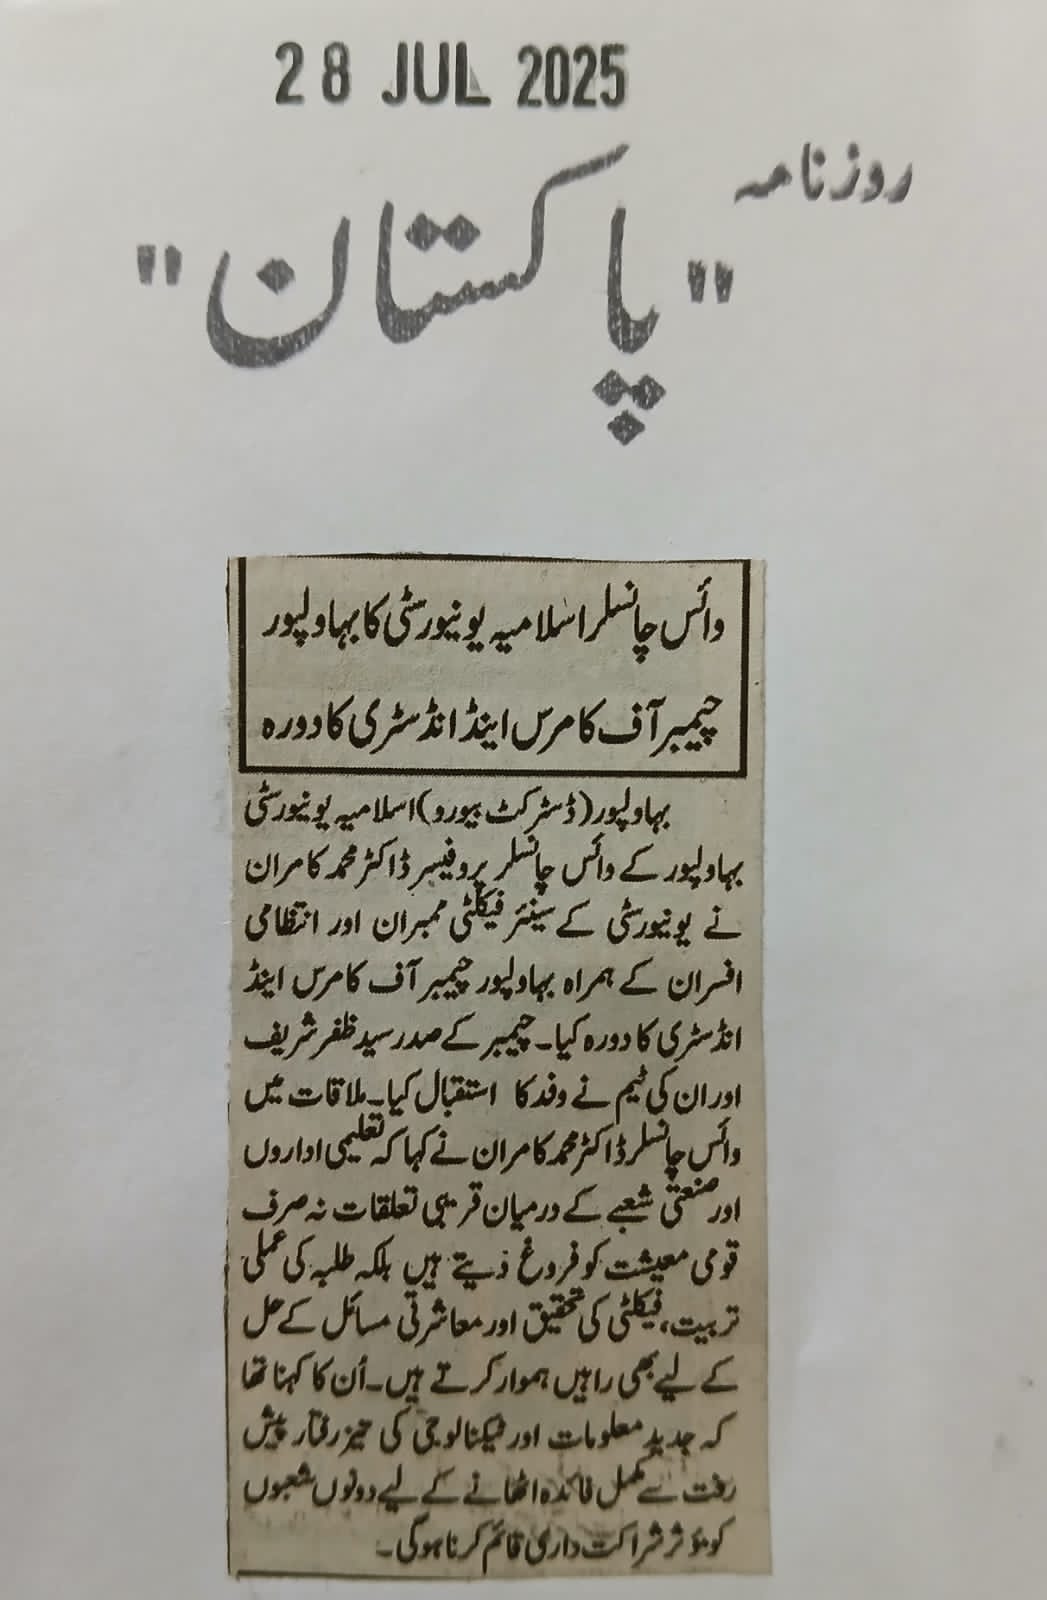 28 JUL 2025
روزنامہ
"پاکستان"
وائس چانسلر اسلامیہ یونیورسٹی کا بہاولپور
چیمبر آف کامرس اینڈ انڈسٹری کا دورہ
بہاولپور (ڈسٹرکٹ بیورو) اسلامیہ یونیورسٹی
بہاولپور کے وائس چانسلر پروفیسر ڈاکٹر محمد کامران
نے یونیورسٹی کے سینئر فیکلٹی ممبران اور انتظامی
افسران کے ہمراہ بہاولپور چیمبر آف کامرس اینڈ
انڈسٹری کا دورہ کیا۔ چیمبر کے صدر سید ظفر شریف
اور ان کی ٹیم نے وفد کا استقبال کیا۔ ملاقات میں
وائس چانسلر ڈاکٹر محمد کامران نے کہا کہ تعلیمی اداروں
اور صنعتی شعبے کے درمیان قریبی تعلقات نہ صرف
قومی معیشت کو فروغ دیتے ہیں بلکہ طلبہ کی عملی
تربیت، فیکلٹی کی تحقیق اور معاشرتی مسائل کے حل
کے لیے بھی راہیں ہموار کرتے ہیں۔ اُن کا کہنا تھا
کہ جدید معلومات اور ٹیکنالوجی کی تیز رفتار پیش
رفت سے مکمل فائدہ اٹھانے کے لیے دونوں شعبوں
کو مؤثر شراکت داری قائم کرنا ہوگی۔